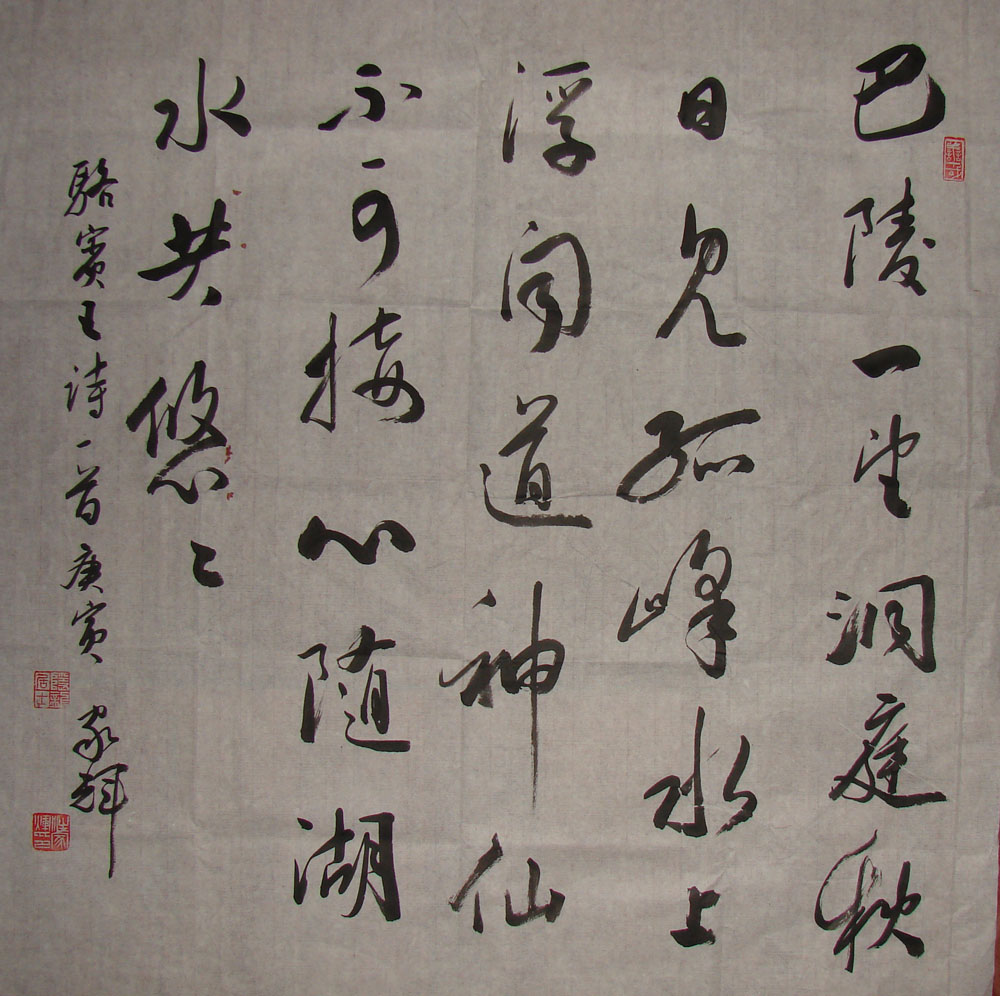 巴陵一望洞庭秋
日見孤峰水上
浮闻道神仙
不可接心随湖
水共悠〻
駱賓王诗一首庚寅家辉